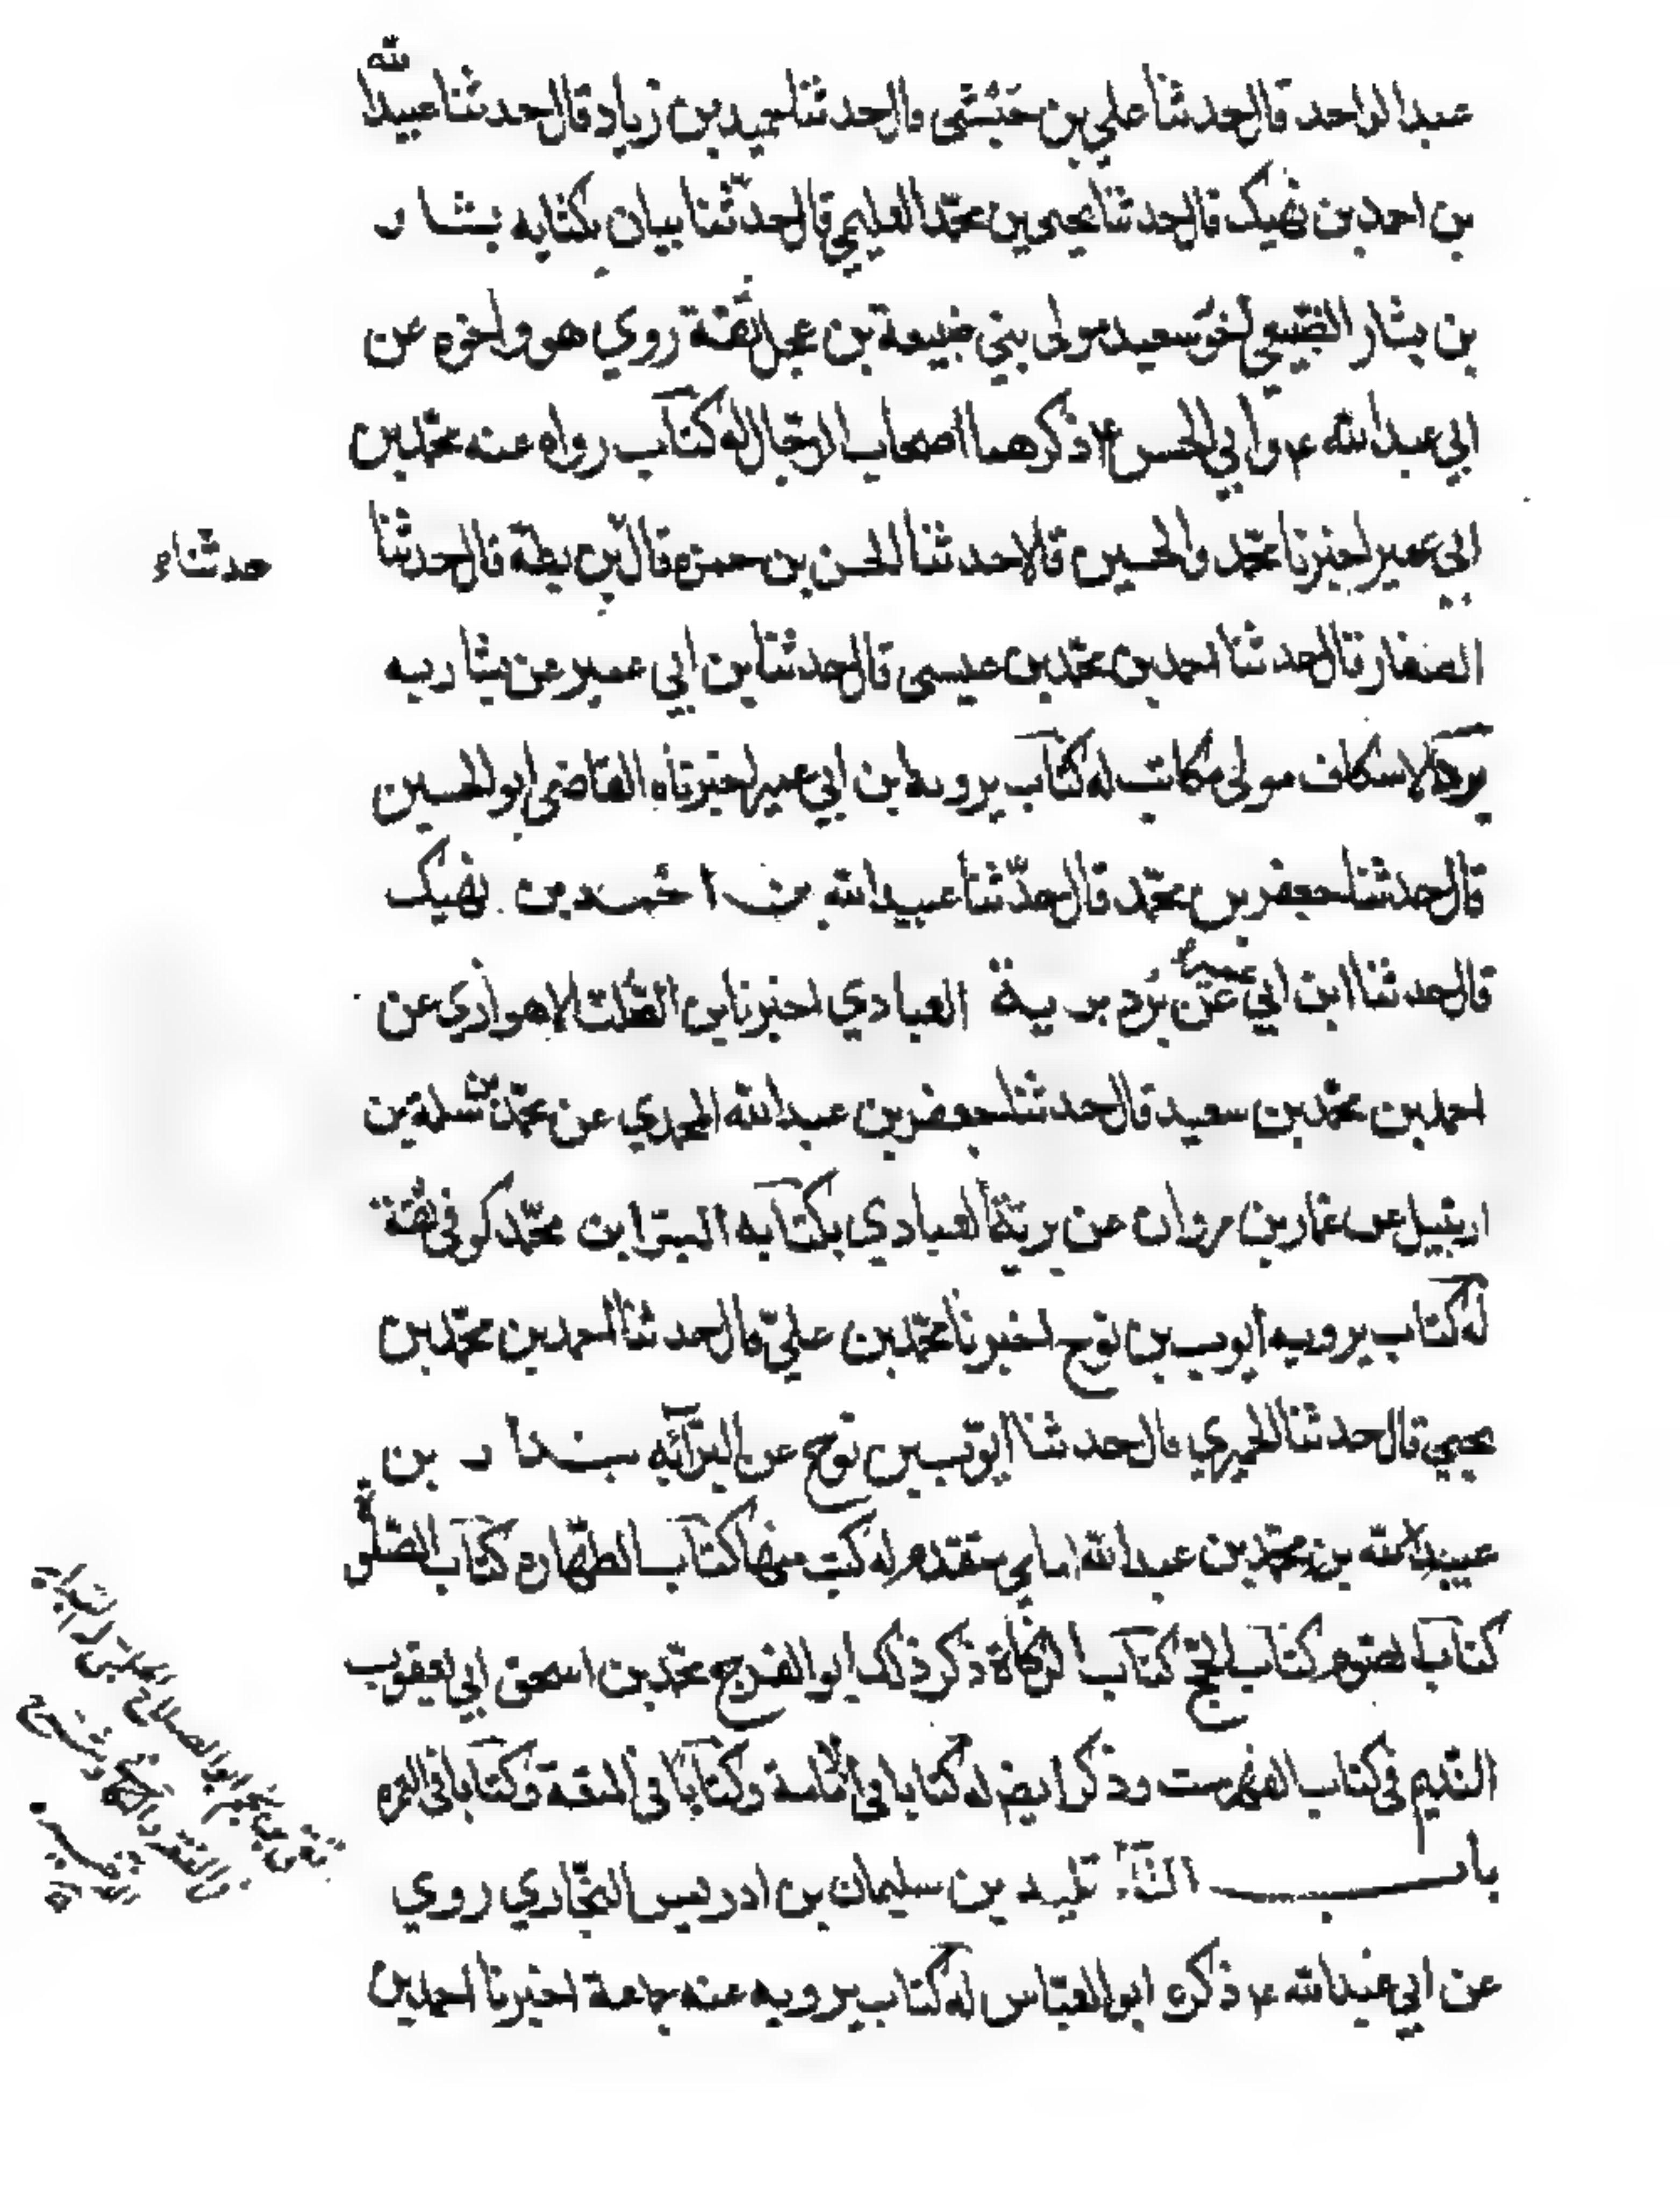 عبد الواحد قال حدثنا علي بن حبشى قال حدثنا حميد بن زياد قال حدثنا عبيد الله
بن احمد بن نهيك قال حدثنا يحيى بن محمد العليمي قال حدّثنا بيان بكتابه بشار
بن يشار الضبيعي اخو سعيد مولى بني ضبيعة بن عجل ثقة روي هو واخوه عن
ابي عبد الله ع وابي الحسن ع ذكرهما اصحاب الرجال له كتاب رواه عنه محمّد بن
ابي عمير اخبرنا محمّد والحسين قالا حدثنا الحسن بن حمزة قال بن بطة قال حدثنا
حدثناء
الصفار قال حدثنا احمد بن محمّد بن عيسى قال حدثنا بن ابي عمير عن بشار به
برد الاسكاف مولى مكاتب له كتاب يرويه ابن ابي عمير اخبرناه القاضى ابو الحسين
قال حدثنا جعفر بن محمّد قال حدّثنا عبيد الله بن احمد بن نهيك
قال حدثنا ابن ابي عمير عن برد به برية العبادي اخبرنا بن الصّلت الاهوازي عن
احمد بن محمّد بن سعيد قال حدثنا جعفر بن عبد الله المحمدي عن محمّد بن سلمة بن
ارتبيل عن عمار بن مروان عن برية العبادي بكتابه البرا بن محمّد كوفى ثقة
له كتاب يرويه ايوب بن نوح اخبرنا محمّد بن علىّ قال حدثنا احمد بن محمّد بن
يحيي قال حدثنا الحميري قال حدثنا ايوّب بن نوح عن البرآء به بندار بن
عبيد الله بن محمّد بن عبد الله امامي متقدم له كتب منها كتاب الطهارة كتاب الصّلوة
كتاب الصّوم كتاب الحج كتاب الزكاة ذكر ذلك ابو الفرج محمّد بن اسحق ابي يعقوب
النّديم فى كتاب الفهرست وذكر ايض له كتابا فى الامامة وكتابًا فى المتعة وكتابا فى العمرة
باب التَّاء تليد بن سليمان بن ادريس المحاربي روي
عن ابي عبد الله ع ذكره ابو العبّاس له كتاب يرويه عنه جماعة اخبرنا احمد بن
تقى بن نجم ابو الصلاح الحلبى